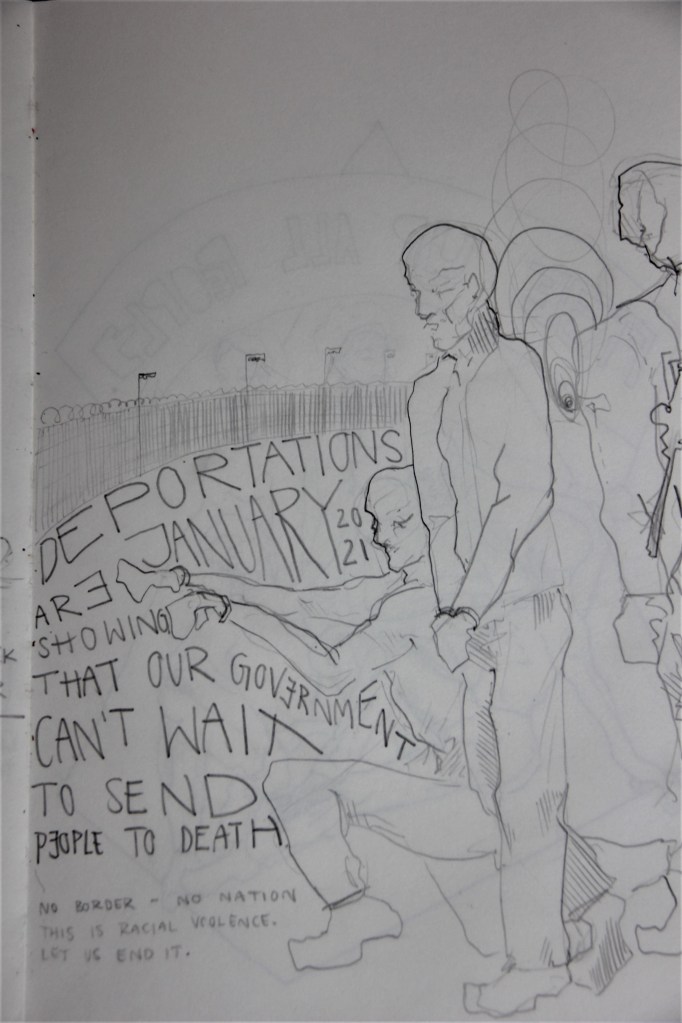 DEPORTATIONS
JANUARY 20
21
ARE
SHOWING
THAT OUR GOVERNMENT
CAN'T WAIT
TO SEND
PEOPLE TO DEATH
NO BORDER - NO NATION
THIS IS RACIAL VIOLENCE.
LET US END IT.